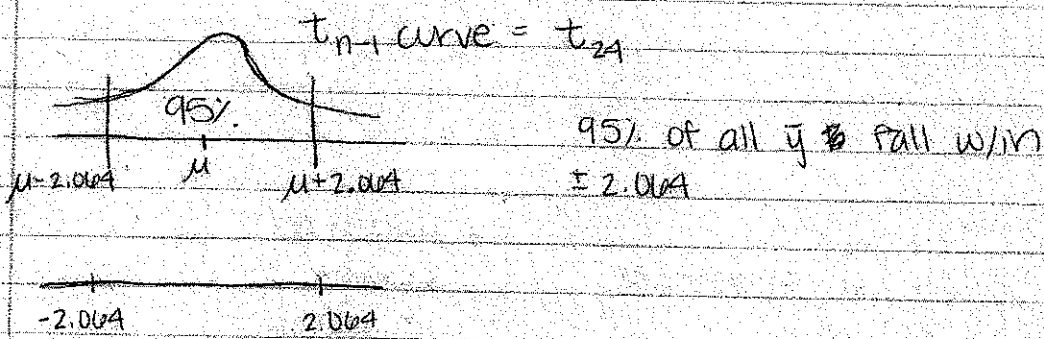 t_{n-1} curve = t_{24}
95%.
μ-2.064 μ μ+2.064
95% of all ȳ fall w/in
± 2.064
-2.064 2.064